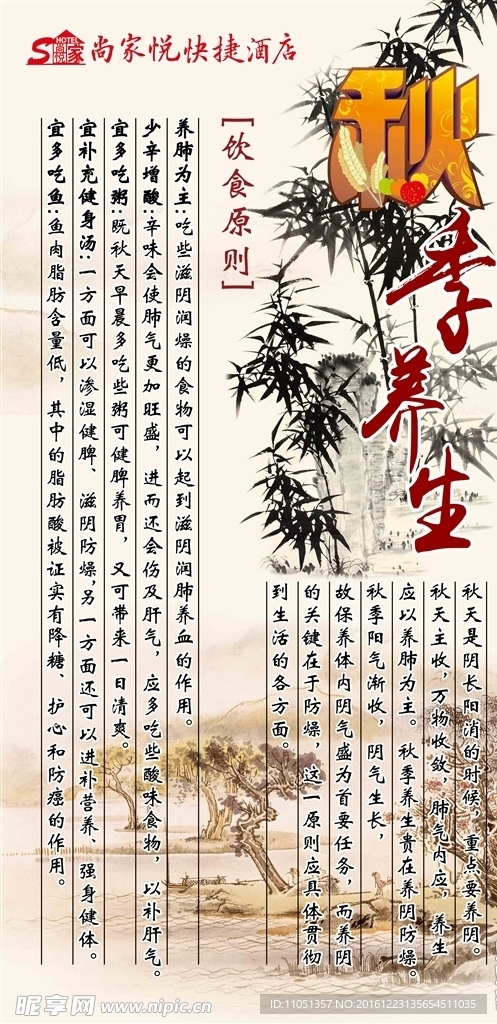 S HOTEL 尚家 尚家悦快捷酒店
秋季养生
秋天是阴长阳消的时候，重点要养阴。
秋天主收，万物收敛，肺气内应，养生
应以养肺为主。秋季养生贵在养阴防燥。
秋季阳气渐收，阴气生长，
故保养体内阴气盛为首要任务，而养阴
的关键在于防燥，这一原则应具体贯彻
到生活的各方面。
[饮食原则]
养肺为主:吃些滋阴润燥的食物可以起到滋阴润肺养血的作用。
少辛增酸:辛味会使肺气更加旺盛，进而还会伤及肝气，应多吃些酸味食物，以补肝气。
宜多吃粥:既秋天早晨多吃些粥可健脾养胃，又可带来一日清爽。
宜补充健身汤:一方面可以渗湿健脾、滋阴防燥,另一方面还可以进补营养、强身健体。
宜多吃鱼:鱼肉脂肪含量低，其中的脂肪酸被证实有降糖、护心和防癌的作用。
昵享网 www.nipic.cn
ID:11051357 NO:20161223135654511035